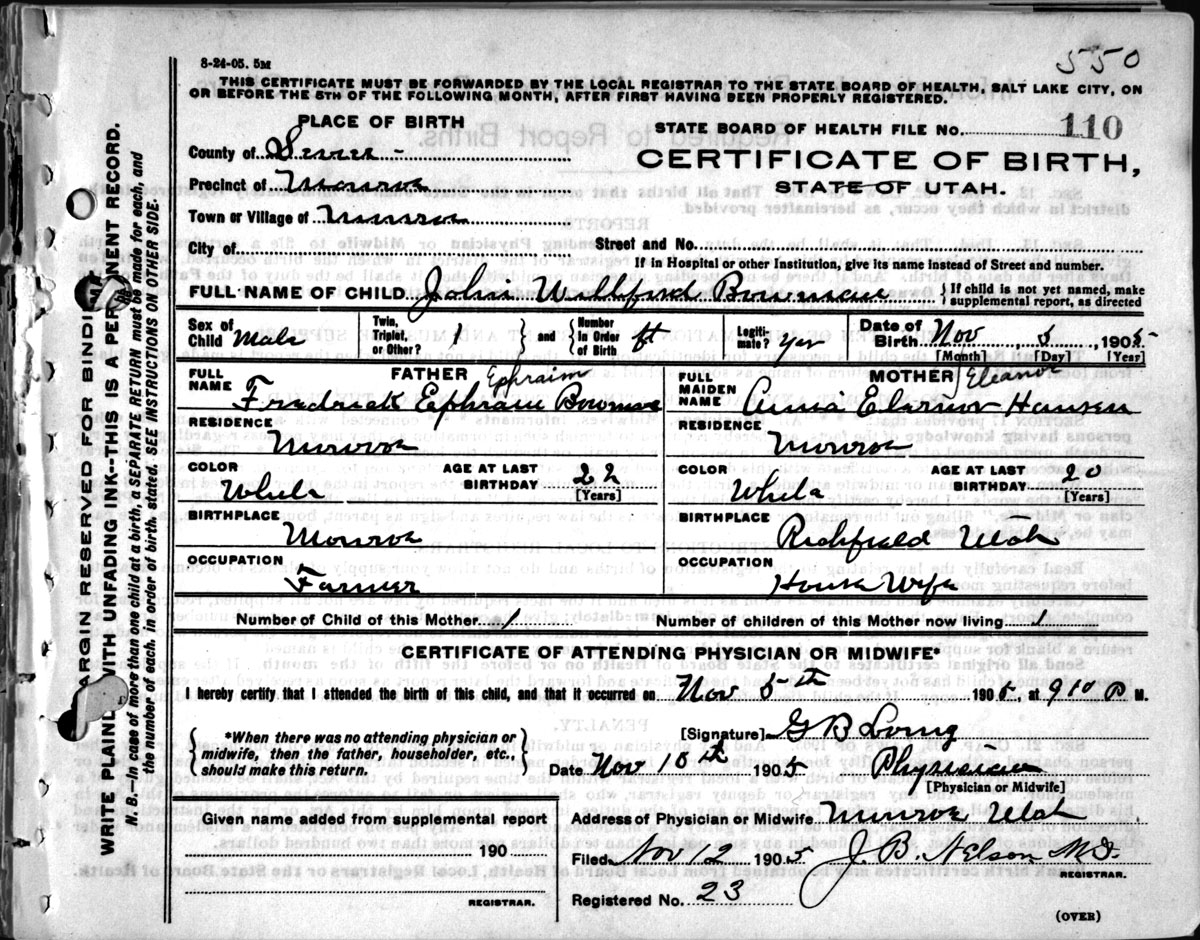 550
8-24-05. 5M
THIS CERTIFICATE MUST BE FORWARDED BY THE LOCAL REGISTRAR TO THE STATE BOARD OF HEALTH, SALT LAKE CITY, ON
OR BEFORE THE 5TH OF THE FOLLOWING MONTH, AFTER FIRST HAVING BEEN PROPERLY REGISTERED.
PLACE OF BIRTH
STATE BOARD OF HEALTH FILE No. 110
County of Sevier
CERTIFICATE OF BIRTH,
STATE OF UTAH.
Precinct of Monroe
Town or Village of Monroe
City of
Street and No.
If in Hospital or other Institution, give its name instead of Street and number.
FULL NAME OF CHILD John Willford Bowman
{ If child is not yet named, make
supplemental report, as directed
Sex of Child Male
Twin, Triplet, or Other? 1 } and { Number in Order of Birth
Legitimate? Yes
Date of Birth Nov 5 1905
[Month] [Day] [Year]
FATHER Ephraim
FULL NAME Fredrick Ephraim Bowman
MOTHER Eleanor
FULL MAIDEN NAME Anna Elarnor Hansen
RESIDENCE Monroe
RESIDENCE Monroe
COLOR White
AGE AT LAST BIRTHDAY 22 [Years]
COLOR White
AGE AT LAST BIRTHDAY 20 [Years]
BIRTHPLACE Monroe
BIRTHPLACE Richfield Utah
OCCUPATION Farmer
OCCUPATION House Wife
Number of Child of this Mother 1
Number of children of this Mother now living 1
CERTIFICATE OF ATTENDING PHYSICIAN OR MIDWIFE*
I hereby certify that I attended the birth of this child, and that it occurred on Nov 5th 1905, at 910 P M.
{ *When there was no attending physician or
midwife, then the father, householder, etc.,
should make this return. }
[Signature] G B Loing
Date Nov 10th 1905 Physician
[Physician or Midwife]
Given name added from supplemental report
190
REGISTRAR.
Address of Physician or Midwife Monroe Utah
Filed Nov 12 1905 J. B. Nelson M.D.
REGISTRAR.
Registered No. 23
(OVER)
MARGIN RESERVED FOR BINDING
WRITE PLAINLY WITH UNFADING INK--THIS IS A PERMANENT RECORD.
N. B.--In case of more than one child at a birth, a SEPARATE RETURN must be made for each, and
the number of each, in order of birth, stated. SEE INSTRUCTIONS ON OTHER SIDE.